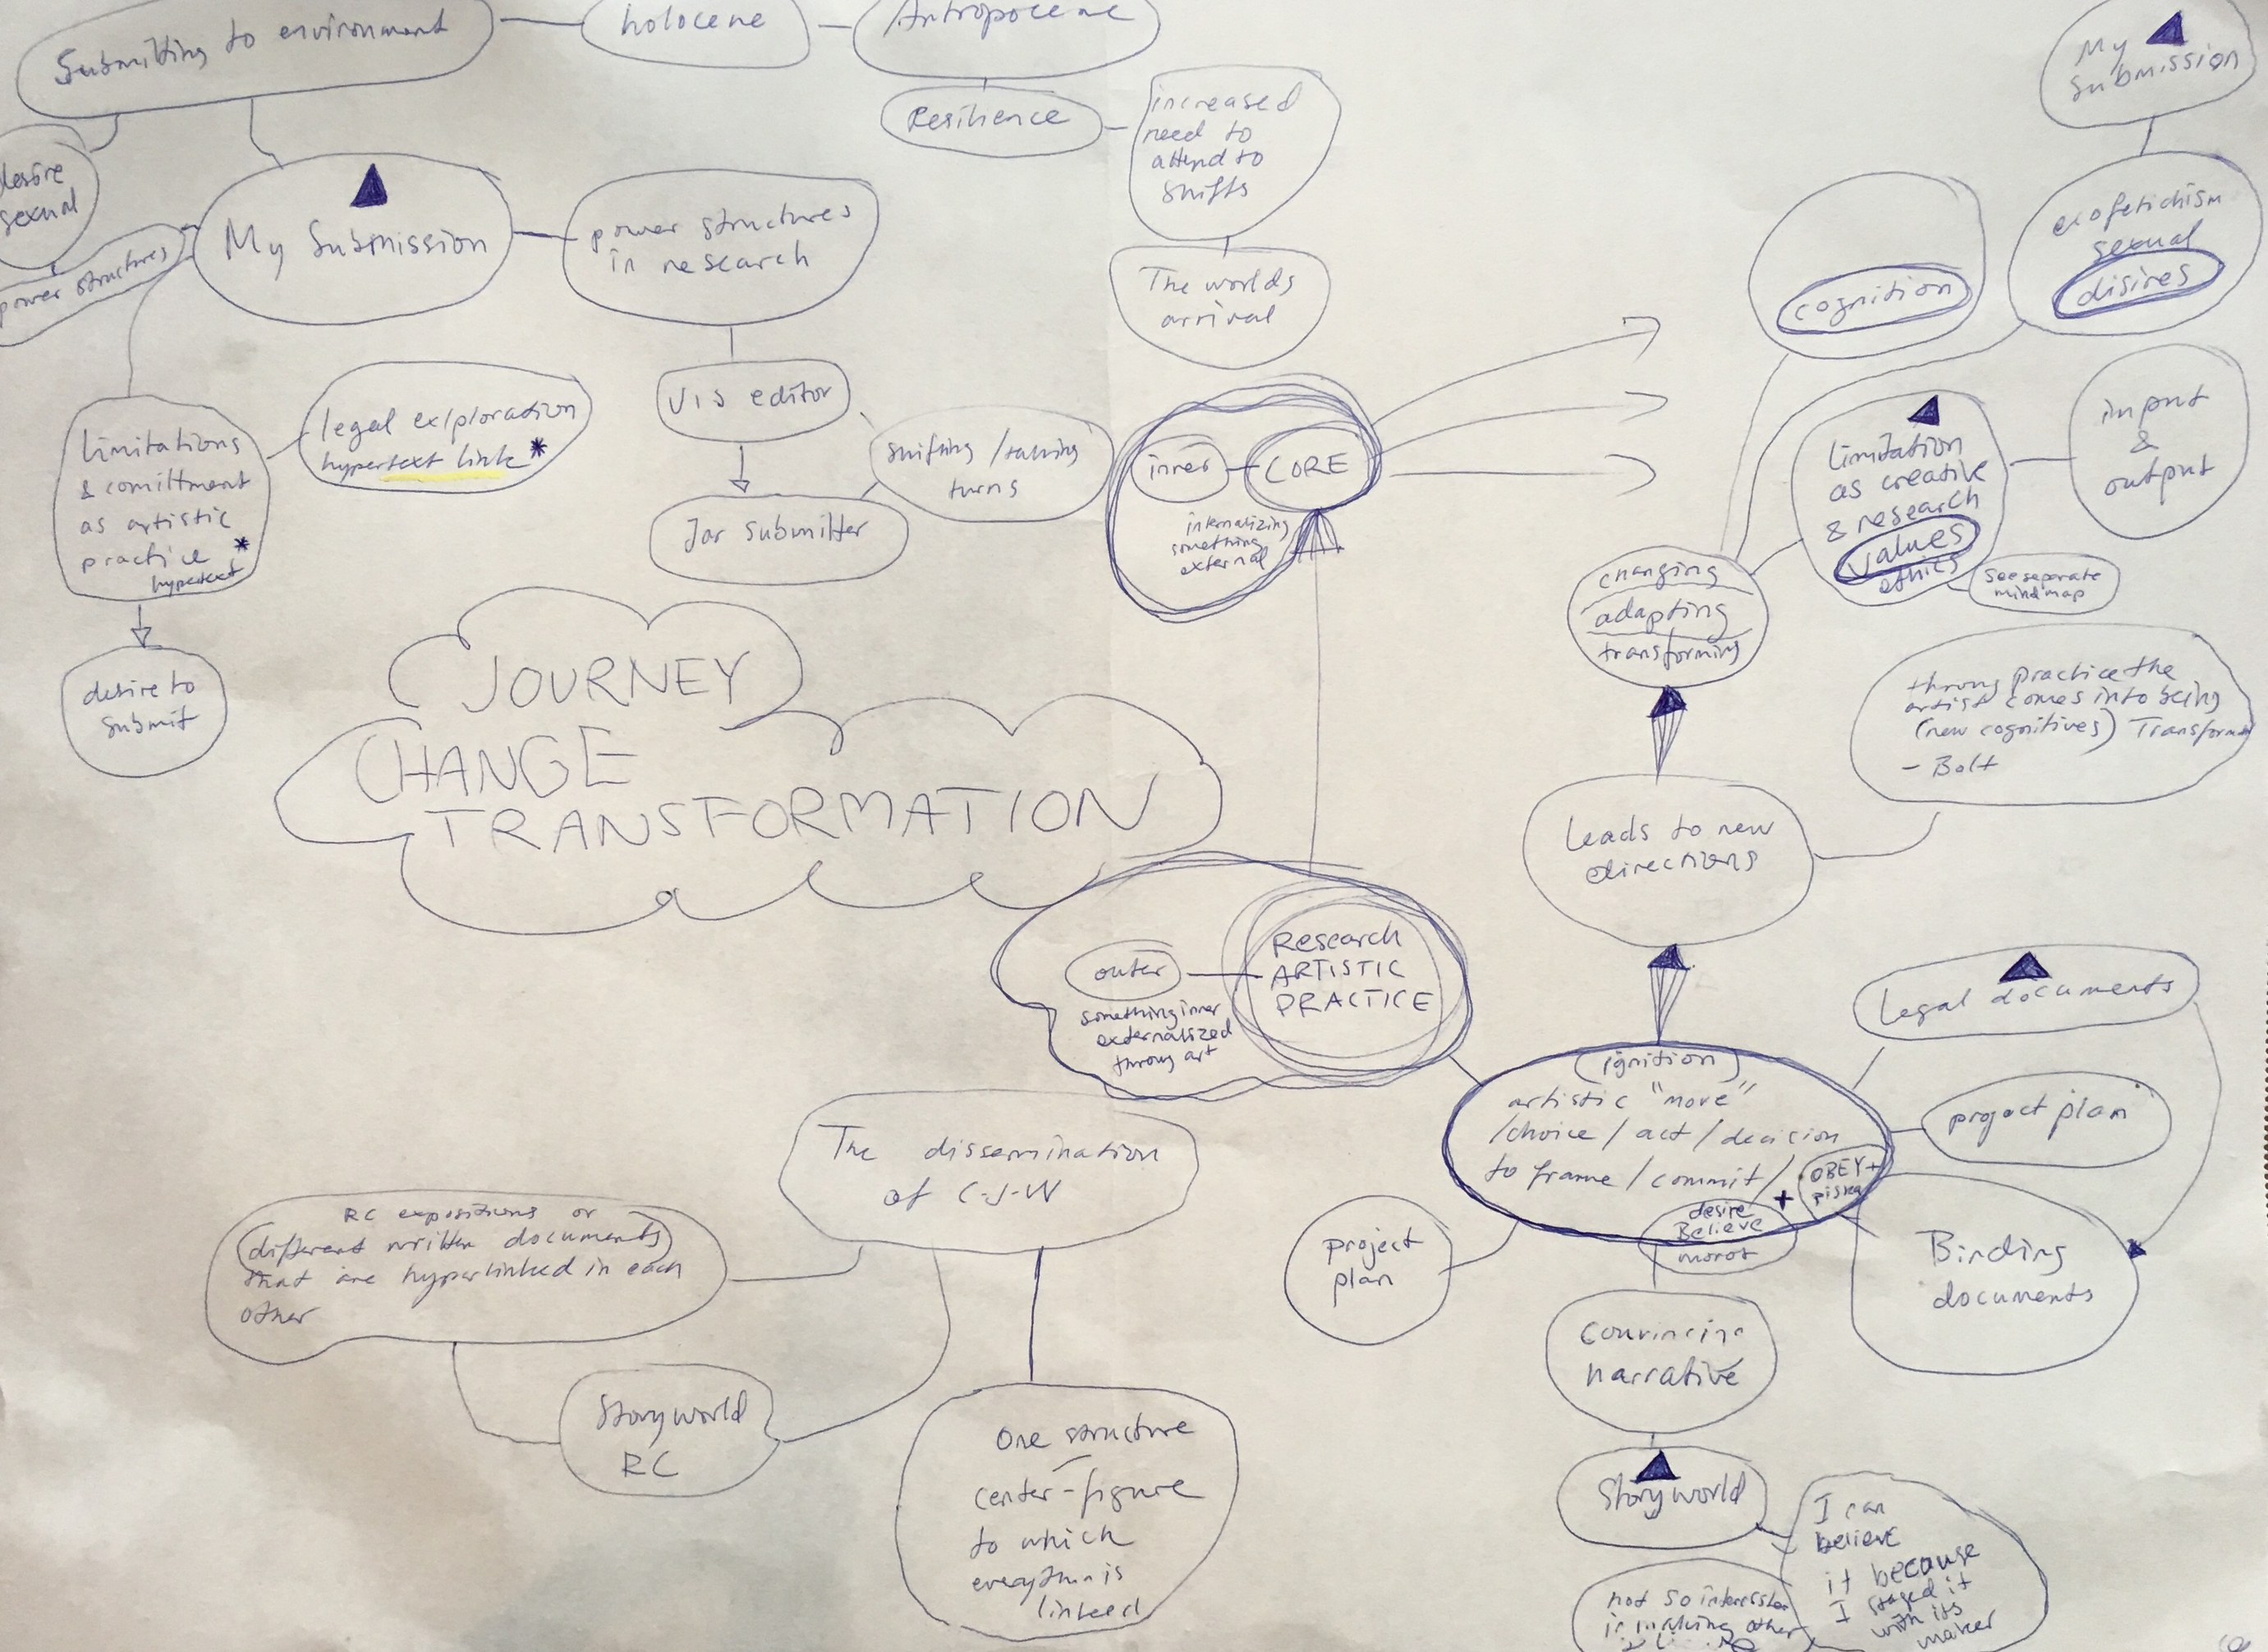 Submitting to environment
holocene
Antropocene
Resilience
increased
need to
attend to
shifts
The worlds
arrival
desire
sexual
power structures
My Submission
power structures
in research
VIS editor
Jar submitter
shifting / taking
turns
limitations
& comittment
as artistic
practice *
hypertext
legal exploration
hypertext link *
desire to
submit
inner
CORE
internalizing
something
external
My
submission
cognition
ecofetichism
sexual
disires
limitation
as creative
& research
values
ethics
see separate
mind map
input
&
output
changing
adapting
transforming
throug practice the
artist comes into being
(new cognitives) Transform
- Bolt
Leads to new
directions
JOURNEY
CHANGE
TRANSFORMATION
outer
something inner
externalized
throug art
Research
ARTISTIC
PRACTICE
Legal documents
project plan
Binding
documents
(ignition)
artistic "move"
/choice / act / decision
to frame / commit /
OBEY +
piska
desire +
Believe
morot
project
plan
Convincing
narrative
Storyworld
I can
believe
it because
I staged it
with its
maker
not so
in making other
The dissemination
of C-J-W
RC expositions or
(different written documents)
that are hyperlinked in each
other
Storyworld
RC
One structure
center-figure
to which
everythin is
linked